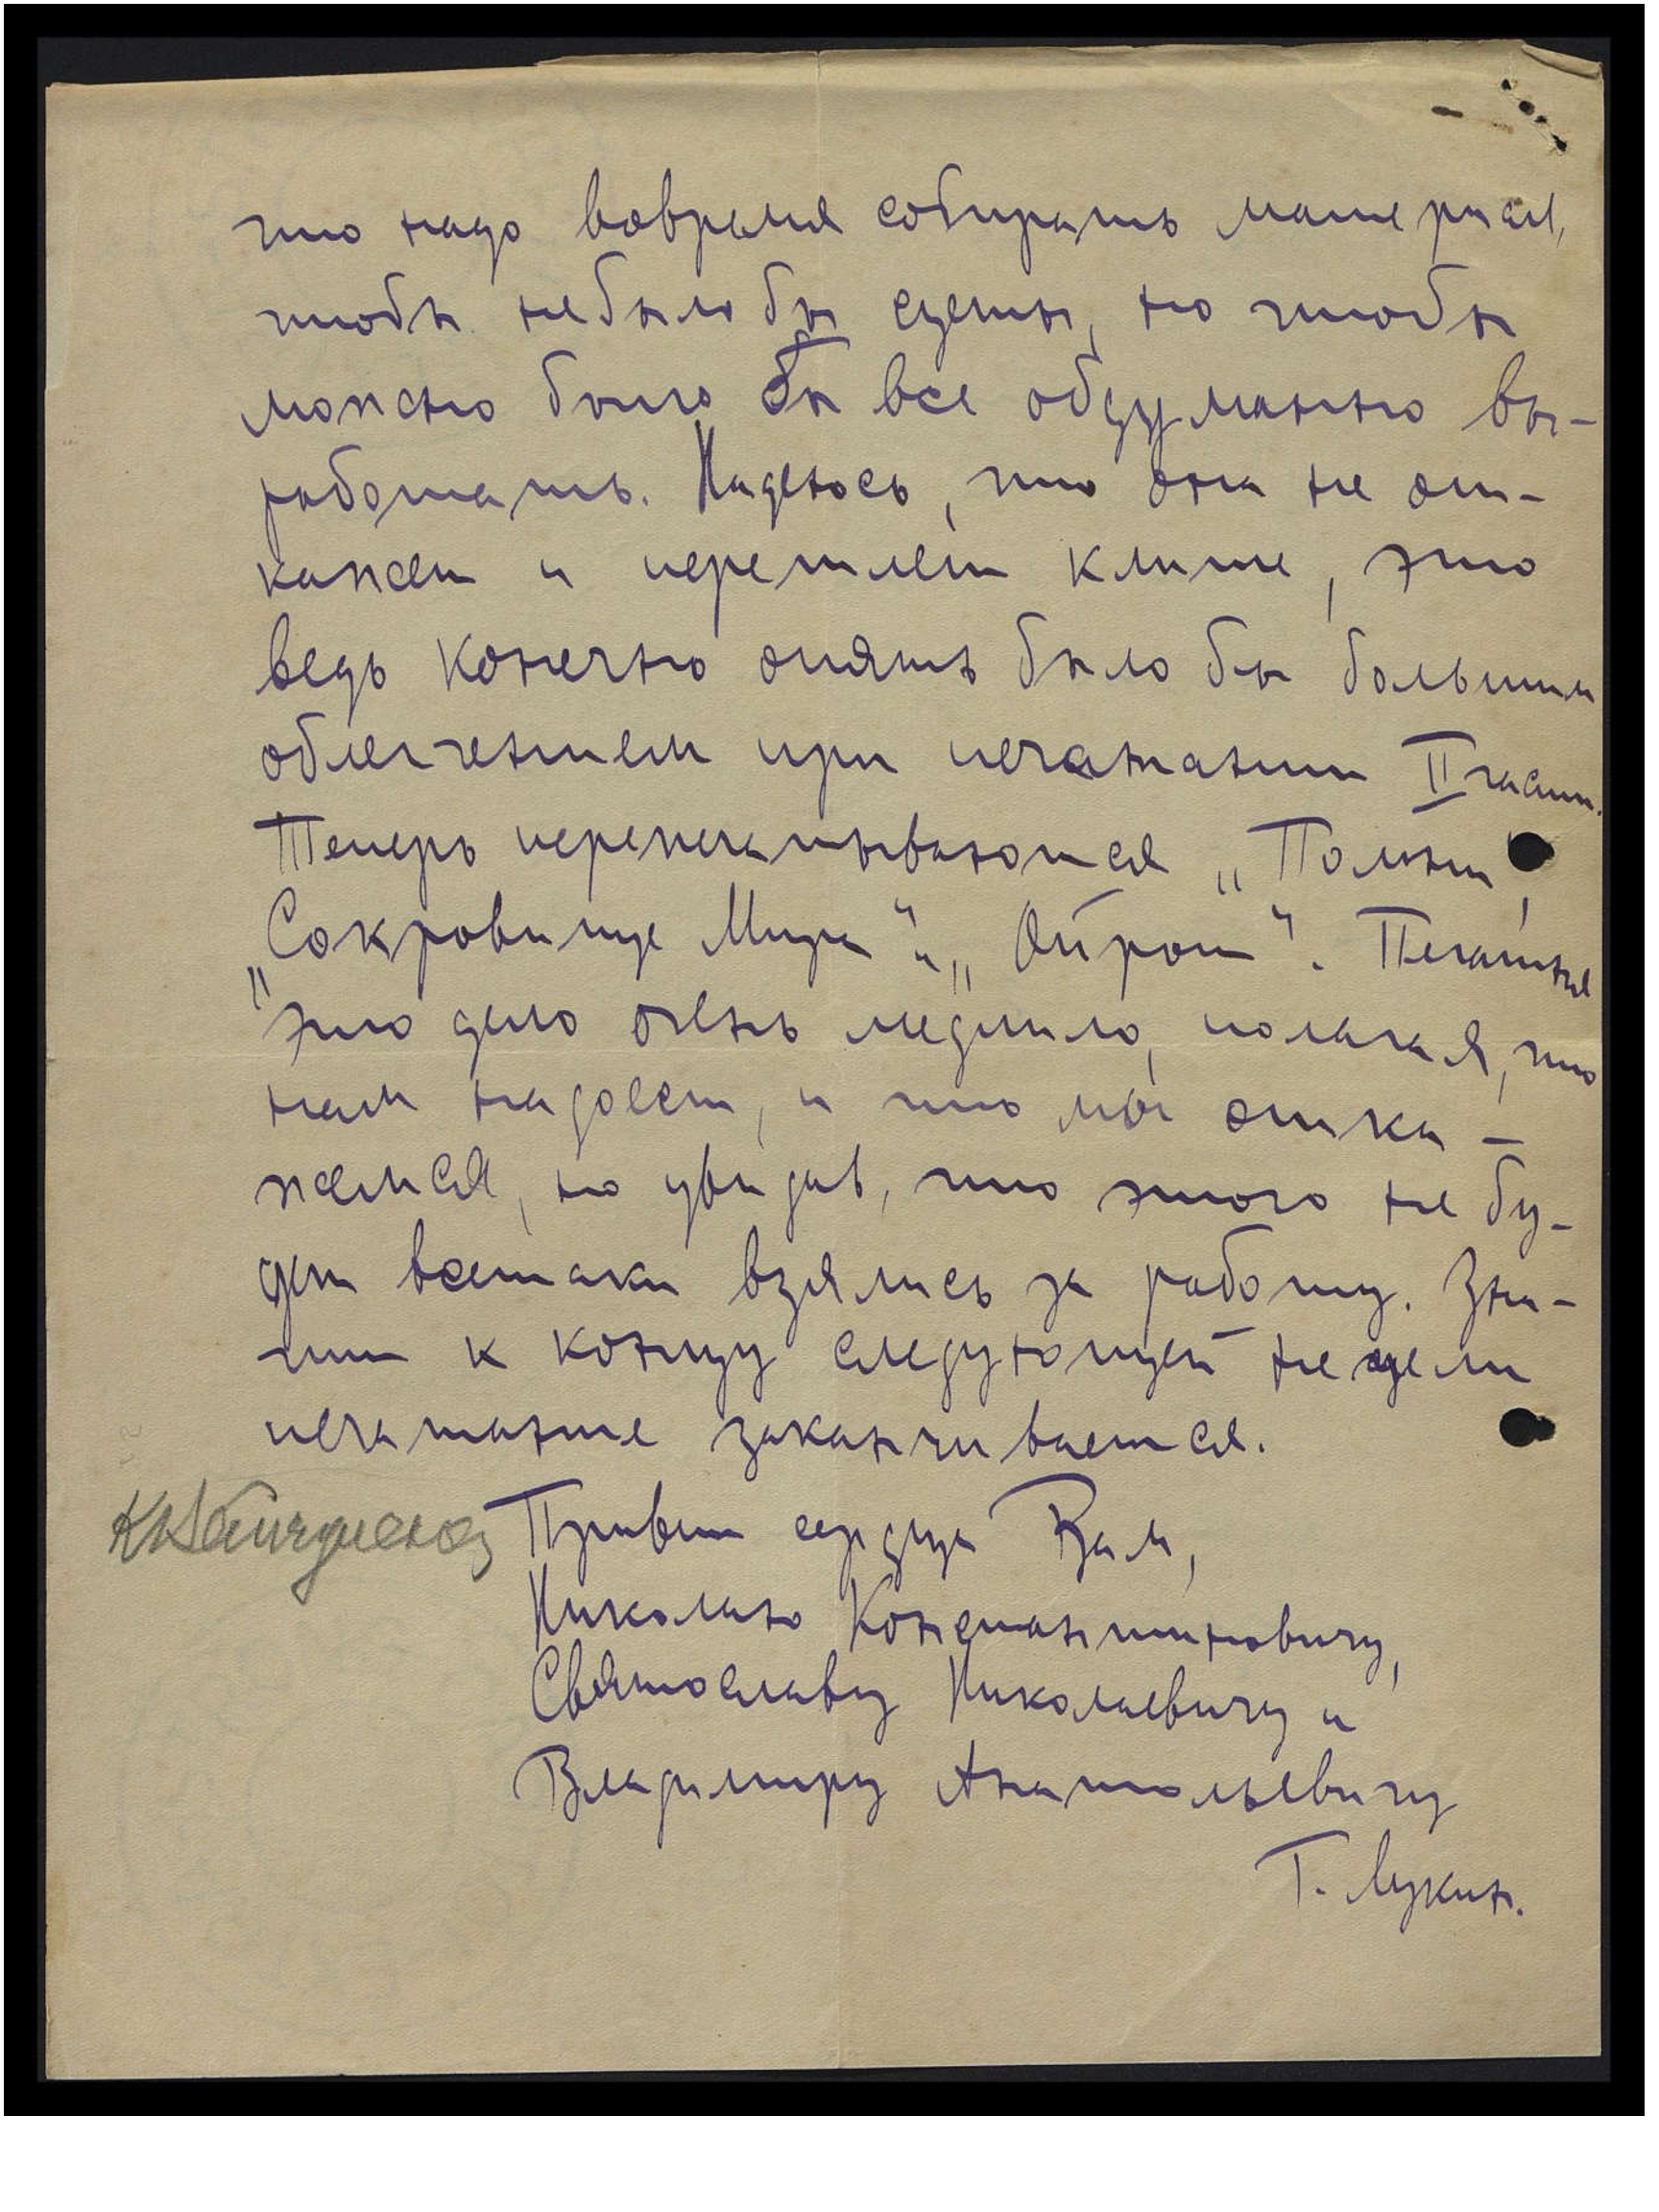 что надо вовремя собирать материал,
чтобы небыло бы суеты, но чтобы
можно было бы все обдуманно вы-
работать. Надеюсь, что она не от-
кажет и перешлет клише, это
ведь конечно опять было бы большим
облегчением при печатании II части.
Теперь перепечатываются „Помни“,
„Сокровище Мира“ и „Ойрот“. Печатня
это дело очень медлила, полагая, что
нам надоест, и что мы отка-
жемся, но увидав, что этого не бу-
дет всетаки взялись за работу. Зна-
чит к концу следующей недели
печатание заканчивается.
Привет сердца Вам,
Николаю Константиновичу,
Святославу Николаевичу и
Владимиру Анатольевичу
Г. Лукин.